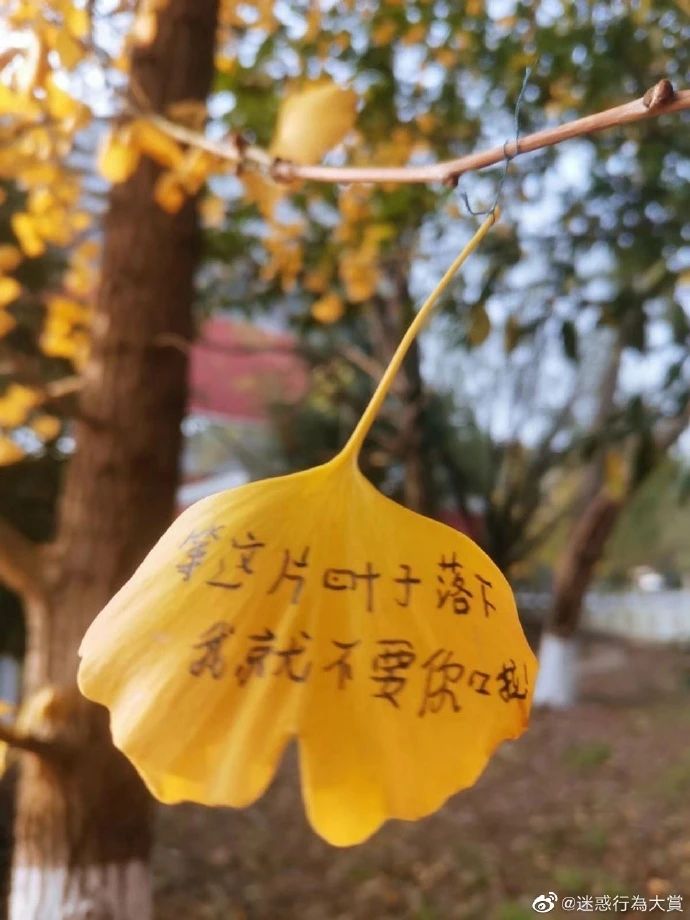 等这片叶子落下
我就不要你啦!
@迷惑行為大賞